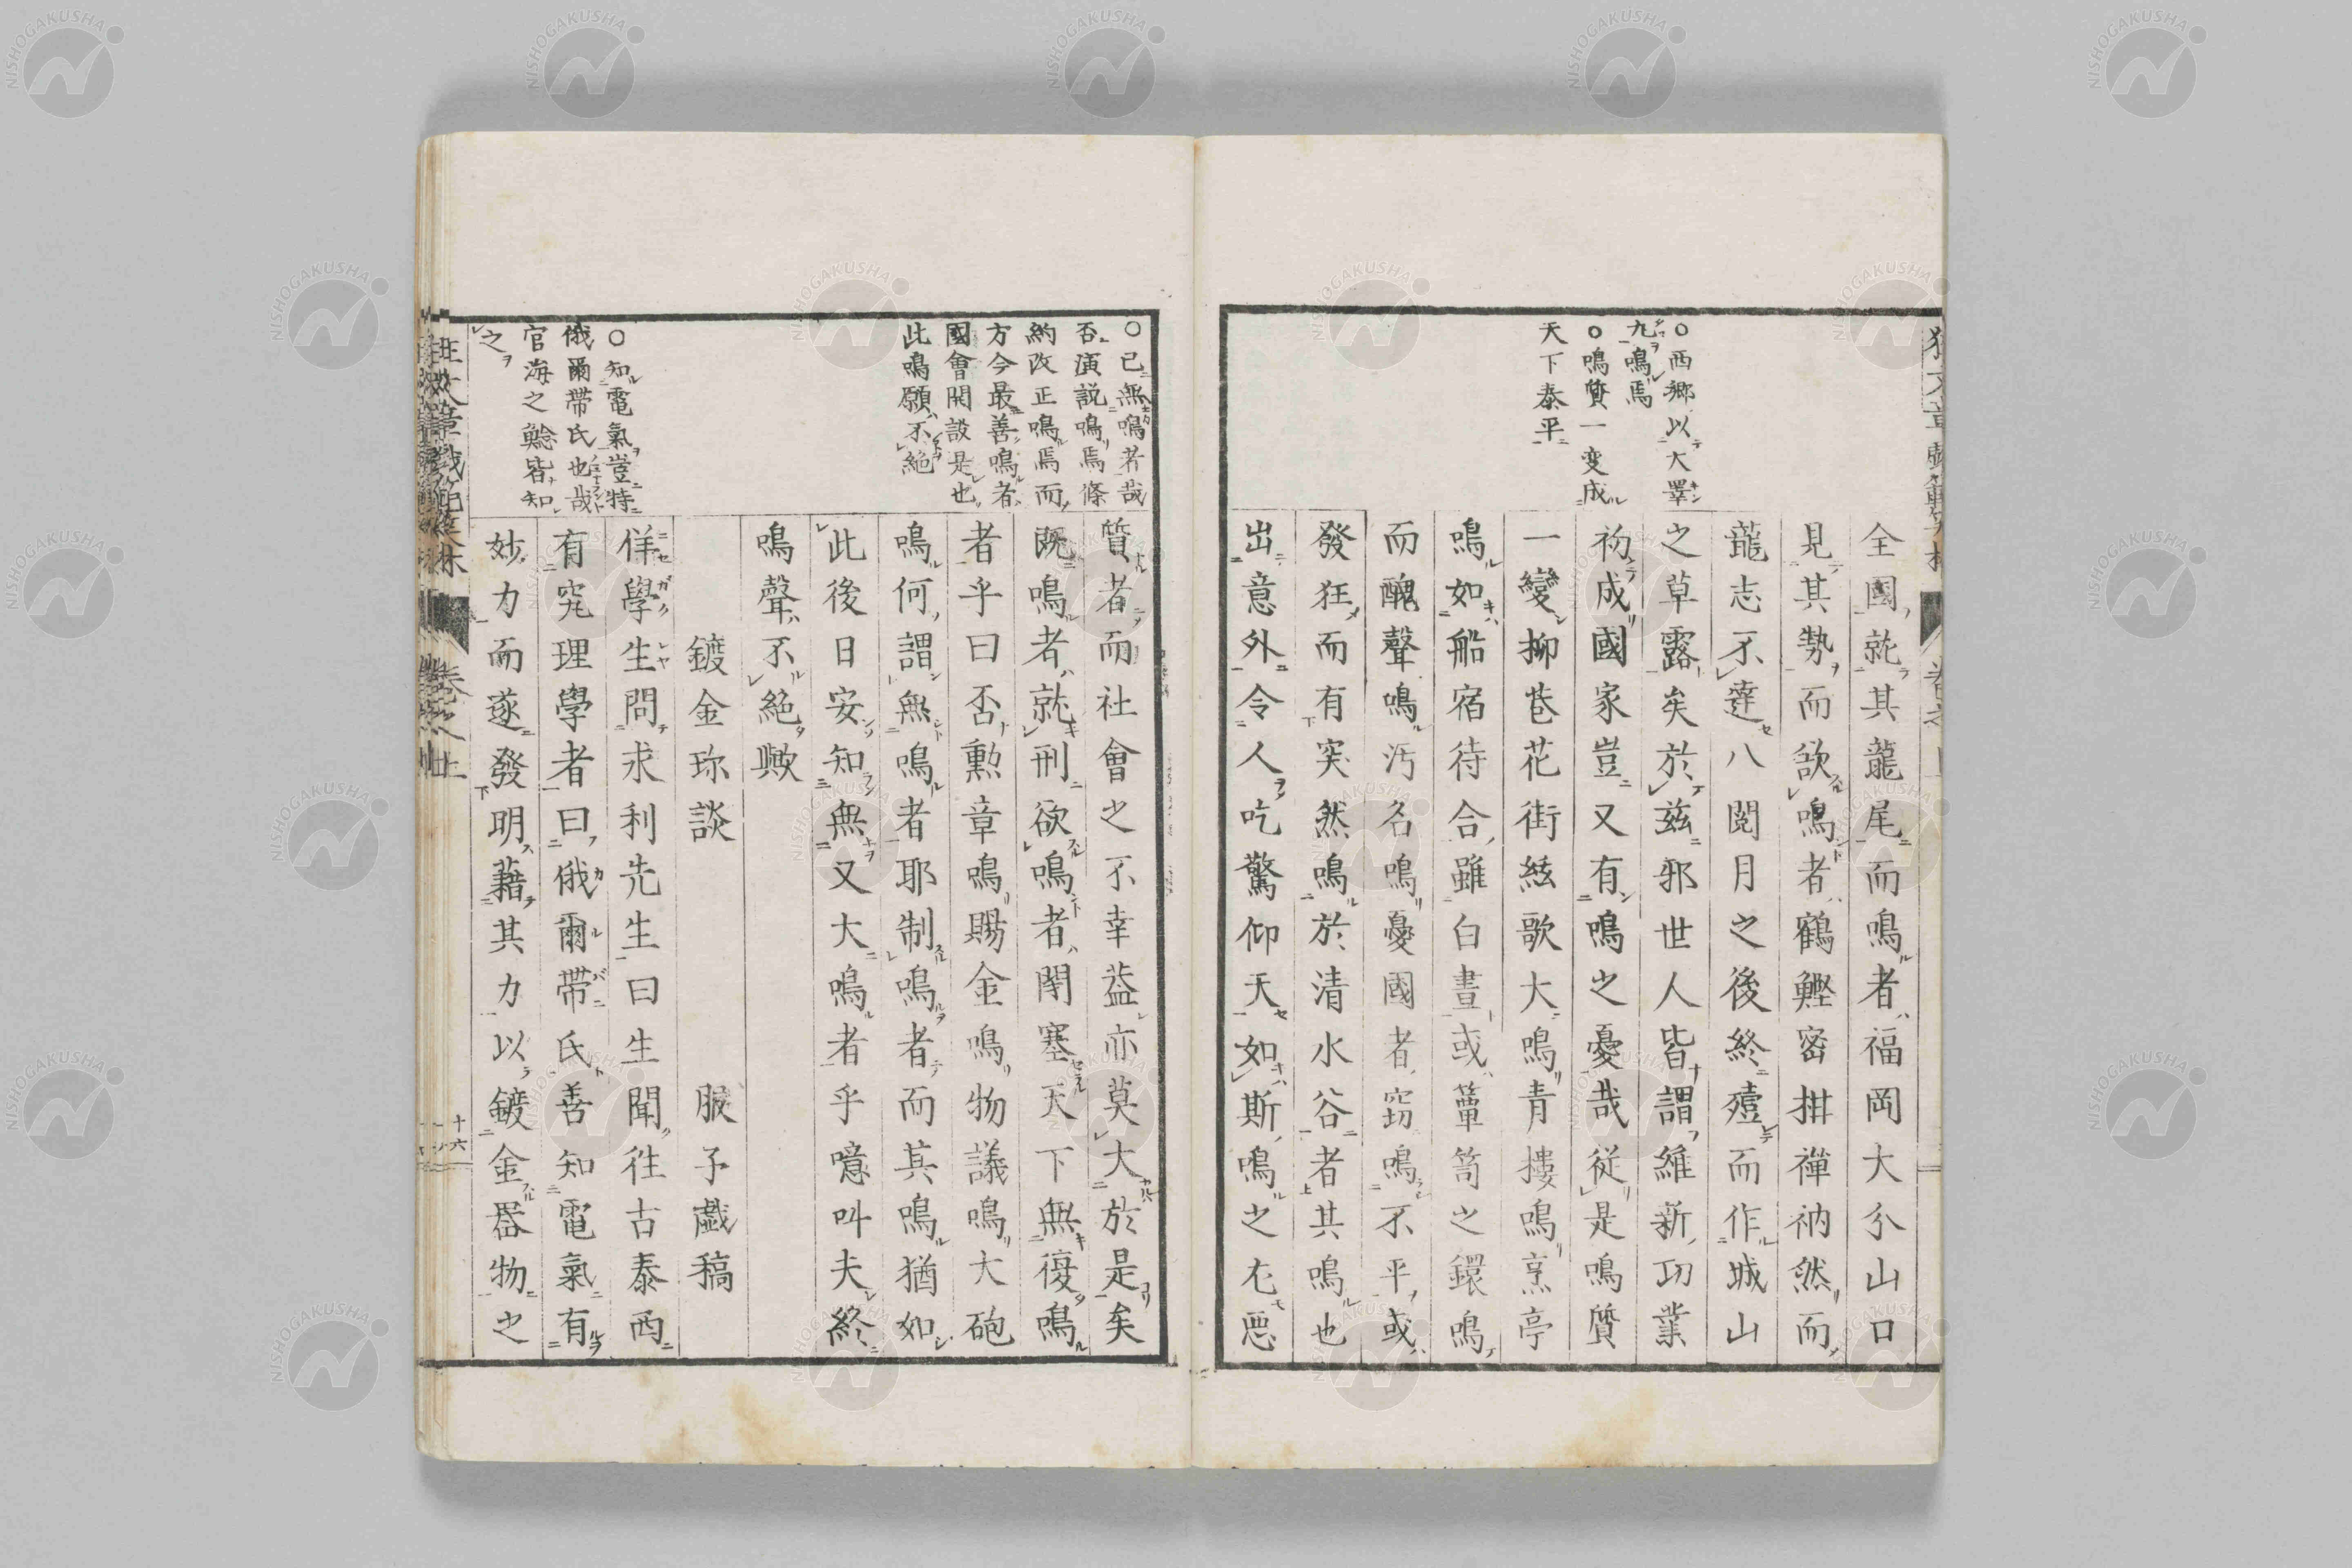 ○西郷以大睾
丸鳴焉
○鳴質一変成
天下泰平
全國就其龍尾而鳴者福岡大分山口
見其勢而欲鳴者鶴鰹密排禪衲然而
龍志不達八閲月之後終殪而作城山
之草露矣於茲邪世人皆謂維新功業
初成國家豈又有鳴之憂哉従是鳴質
一變柳巷花街絃歌大鳴青摟鳴烹亭
鳴如船宿待合雖白晝或簟笥之鐶鳴
而醜聲鳴汚名鳴憂國者窃鳴不平或
發狂而有突然鳴於清水谷者其鳴也
出意外令人吃驚仰天如斯鳴之尤悪
○已無鳴者哉
否演説鳴焉條
約改正鳴焉而
方今最善鳴者
國會開設是也
此鳴願不絶
○知電氣豈特
俄爾帯氏也哉
官海之鯰皆知
之
質者而社會之不幸益亦莫大於是矣
既鳴者就刑欲鳴者閉塞天下無復鳴
者乎曰否勲章鳴賜金鳴物議鳴大砲
鳴何謂無鳴者耶制鳴者而其鳴猶如
此後日安知無又大鳴者乎噫叫夫終
鳴聲不絶歟
鍍金珎談 服子戯稿
佯學生問求利先生曰生聞往古泰西
有究理學者曰俄爾帯氏善知電氣有
妙力而遂發明藉其力以鍍金噐物之
十六
NISHOGAKUSHA